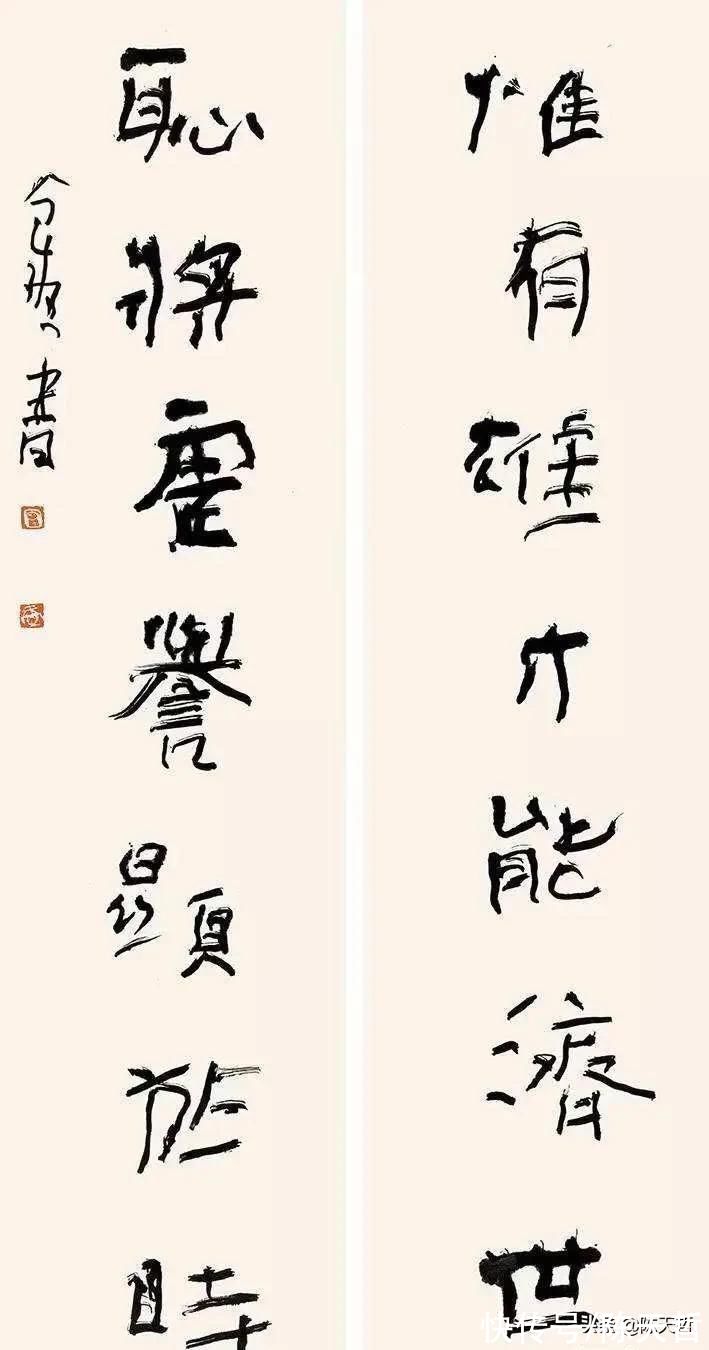 惟有雄才能濟世
恥將虛譽顯於時
書
快传号/陈天哲
头条@陈天哲